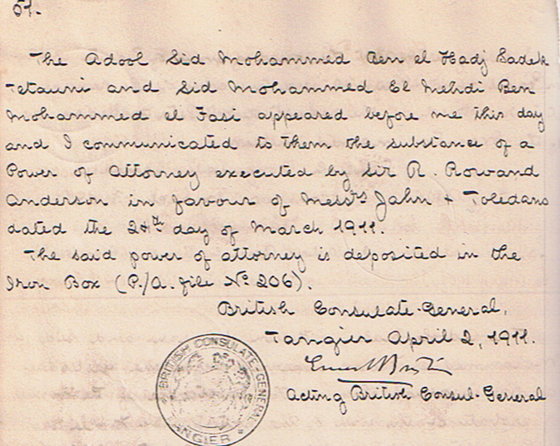 57.
The Adool Sid Mohammed Ben el Hadj Sadek
Tetauni and Sid Mohammed El Mehdi Ben
Mohammed el Fasi appeared before me this day
and I communicated to them the substance of a
Power of Attorney executed by Sir R. Rowand
Anderson in favour of Messrs Jahn + Toledano
dated the 24th day of March 1911.
The said power of attorney is deposited in the
Iron Box (P./A. file No 206).
British Consulate-General,
Tangier April 2, 1911.
Acting British Consul-General
BRITISH CONSULATE-GENERAL
TANGIER